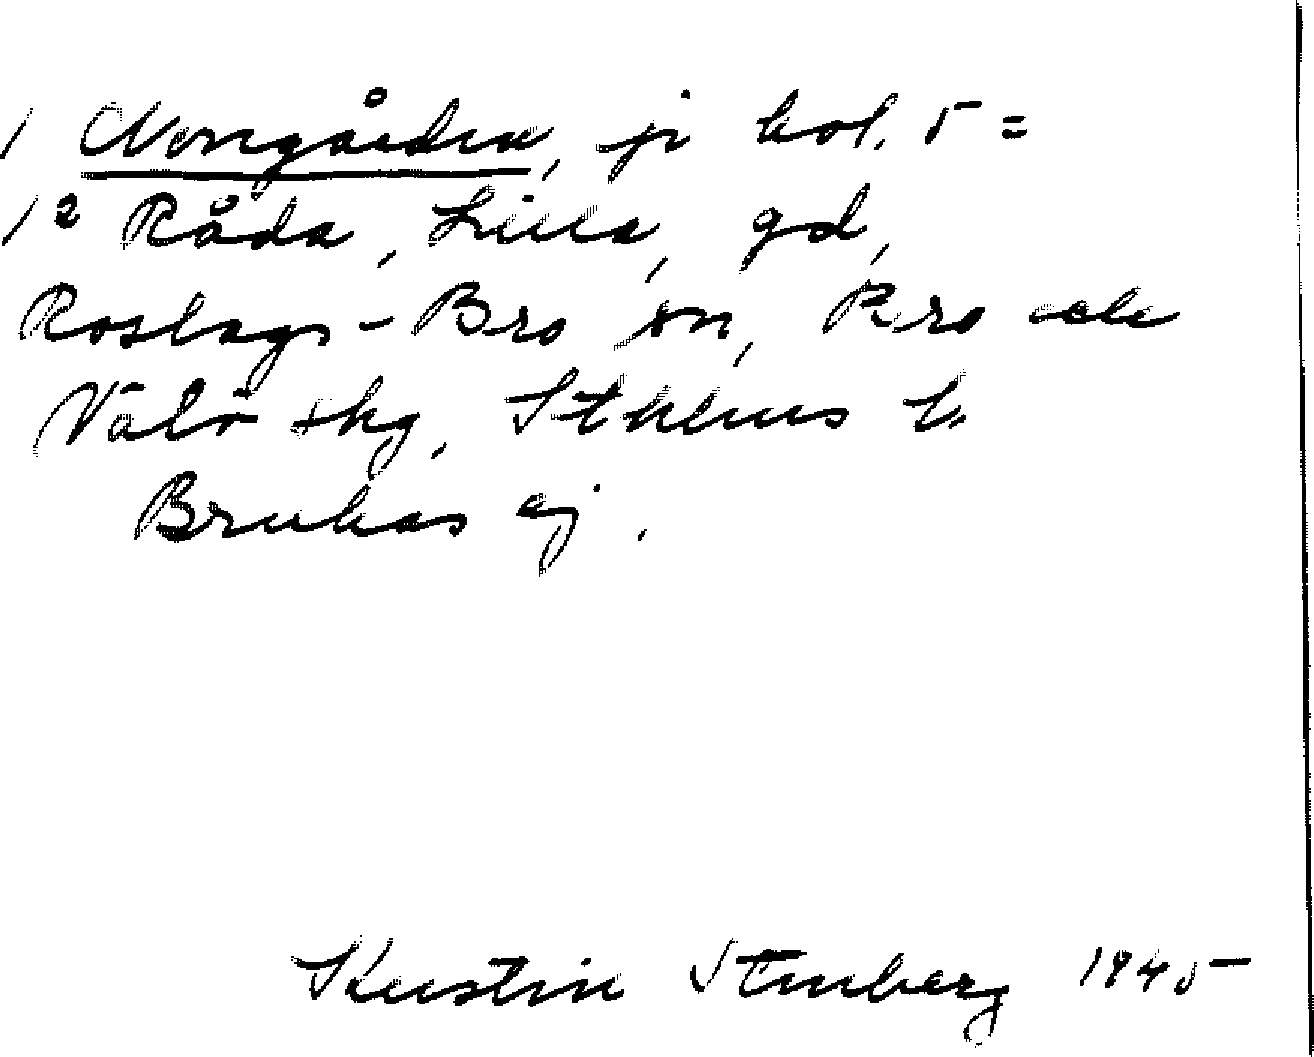 1 Norrgården, ji kol. 5 =
1² Råda, Lilla, gd,
Roslags-Bro sn, Bro och
Vätö skg, Sthlms l.
Brukas ej.
Kerstin Stenberg 1945